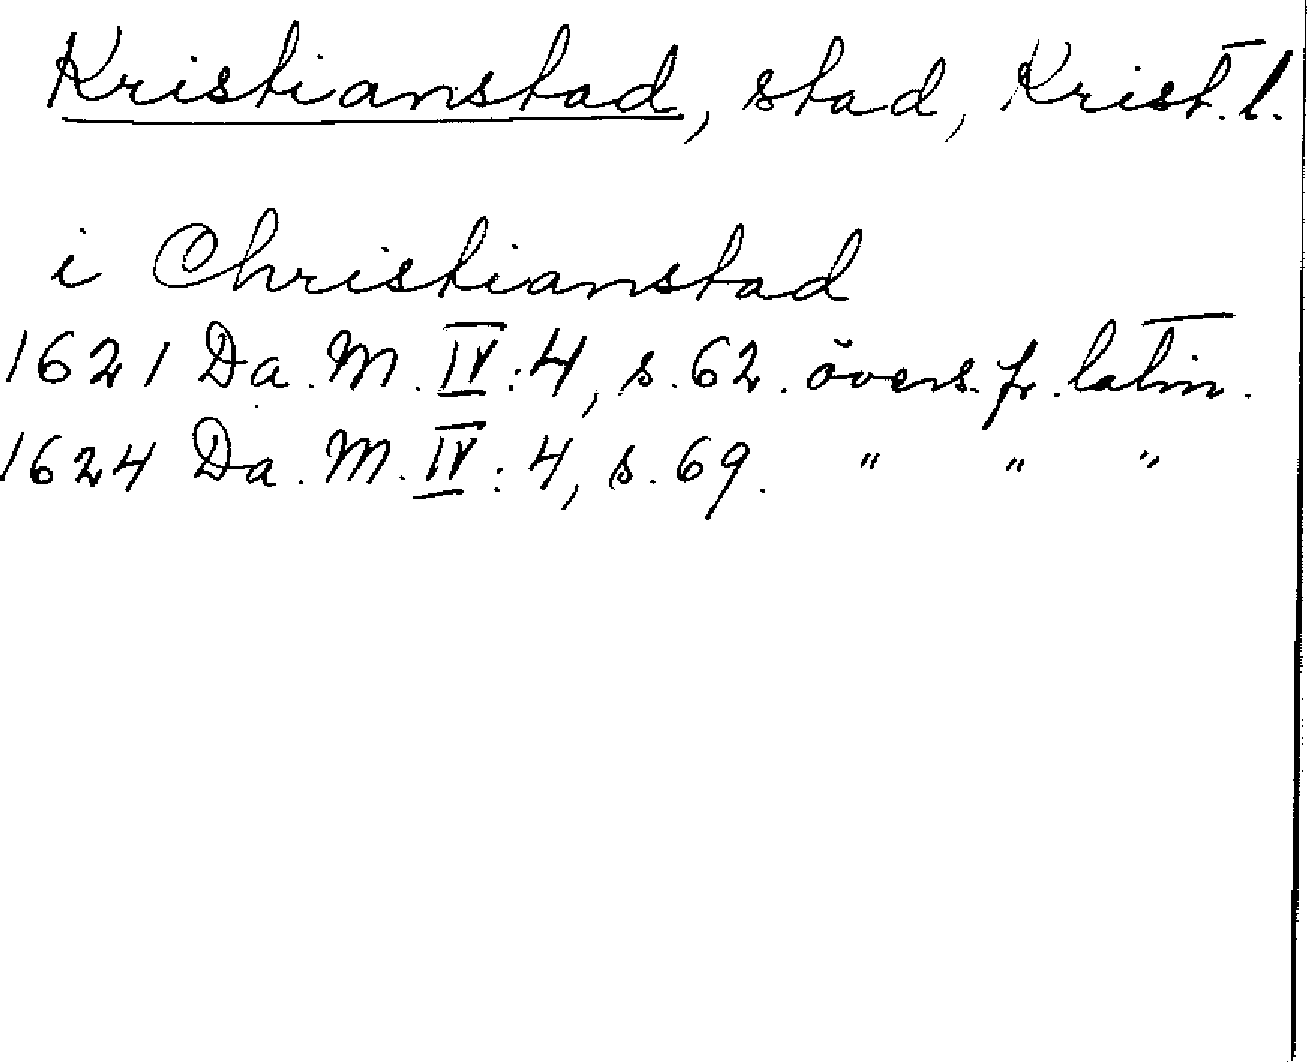 Kristianstad, stad, Krist. l.
i Christianstad
1621 Da. M. IV:4, s. 62. övers. fr. latin.
1624 Da. M. IV:4, s. 69. " " "